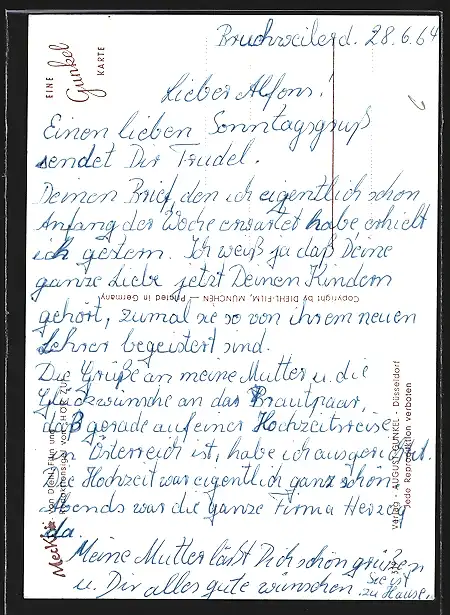 Bruchweiler d. 28.6.64
Lieber Alfons!
Einen lieben Sonntagsgruß
sendet Dir Trudel.
Deinen Brief, den ich eigentlich schon
Anfang der Woche erwartet habe, erhielt
ich gestern. Ich weiß ja daß Deine
ganze Liebe jetzt Deinen Kindern
gehört, zumal sie so von ihrem neuen
Lehrer begeistert sind.
Die Grüße an meine Mutter u. die
Glückwünsche an das Brautpaar,
daß gerade auf einer Hochzeitsreise
in Österreich ist, habe ich ausgerichtet.
Die Hochzeit war eigentlich ganz schön
abends war die ganze Firma
da.
Meine Mutter läßt Dich schön grüßen
u. Dir alles gute wünschen. Sie ist
zu Hause.
EINE
Gunkel
KARTE
Copyright by DIEHL-FILM, MÜNCHEN — Printed in Germany
Mecki
von Diehl-Film und
Redaktionsigel von HÖR ZU
Verlag · AUGUST GUNKEL · Düsseldorf
Jede Reproduktion verboten